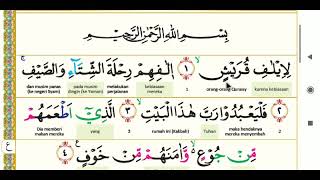 بِسْمِ اللّٰهِ الرَّحْمٰنِ الرَّحِيْمِ
لِاِيْلٰفِ قُرَيْشٍۙ ١ اٖلٰفِهِمْ رِحْلَةَ الشِّتَاۤءِ وَالصَّيْفِۚ
karena kebiasaan orang-orang Quraisy 1 kebiasaan mereka melakukan perjalanan pada musim dingin (ke Yaman) dan musim panas (ke negeri Syam)
٢ فَلْيَعْبُدُوْا رَبَّ هٰذَا الْبَيْتِۙ ٣ الَّذِيْٓ اَطْعَمَهُمْ
2 maka hendaknya mereka menyembah Tuhan rumah ini (Kakbah) 3 yang Dia memberi makan mereka
مِّنْ جُوْعٍ ەۙ وَّاٰمَنَهُمْ مِّنْ خَوْفٍ ٤
ع